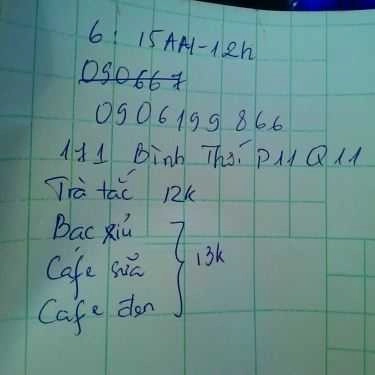 6: 15AM-12h
090667
0906199866
171 Bình Thới P11 Q11
Trà tắc 12k
Bạc xỉu
Cafe sữa 13k
Cafe đen